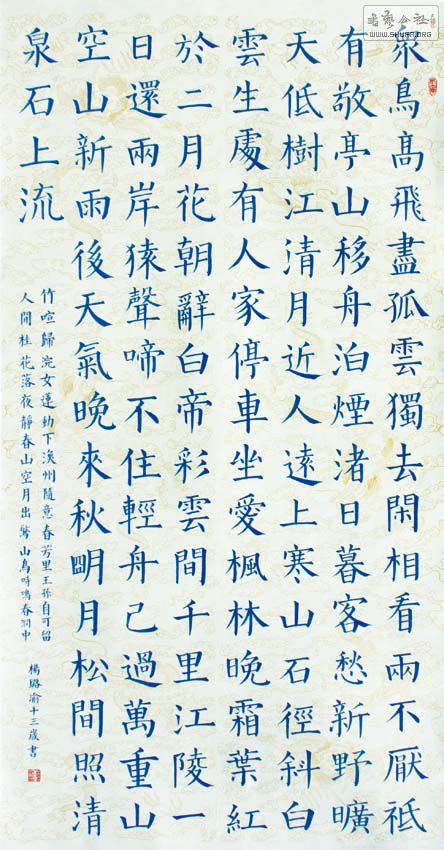 書藝公社
WWW.SHUFA.ORG
眾鳥髙飛盡孤雲獨去閑相看兩不厭祗
有敬亭山移舟泊煙渚日暮客愁新野曠
天低樹江清月近人遠上寒山石徑斜白
雲生處有人家停車坐愛楓林晚霜葉紅
於二月花朝辭白帝彩雲間千里江陵一
日還兩岸猿聲啼不住輕舟已過萬重山
空山新雨後天氣晚來秋眀月松間照清
泉石上流
竹喧歸浣女蓮動下漁州隨意春芳里王孫自可留
人閒桂花落夜靜春山空月出驚山鳥時鳴春澗中
楊璐渝十三歲書